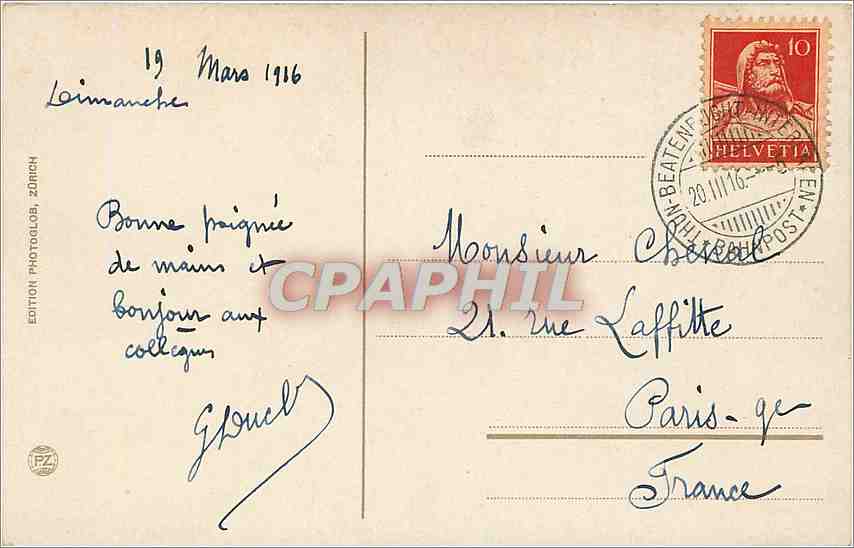 19 Mars 1916
Dimanche
Bonne poignée
de mains et
bonjour aux
collègues
EDITION PHOTOGLOB, ZÜRICH
PZ
CPAPHIL
10
HELVETIA
THUN-BEATENBUCHT-INTERLAKEN
20.III.16.
BAHNPOST
Monsieur Cheval
21. rue Laffitte
Paris-9e
France